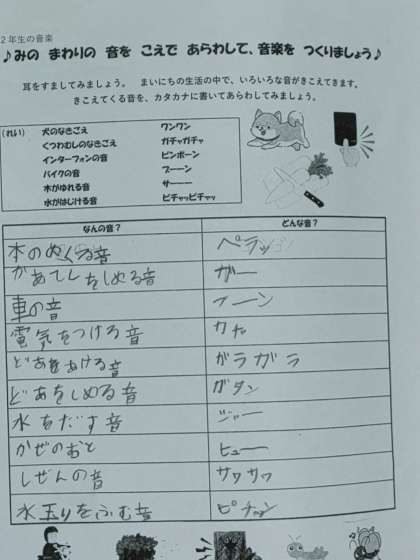 2年生の音楽
♪みの まわりの 音を こえで あらわして、音楽を つくりましょう♪
耳をすましてみましょう。 まいにちの生活の中で、いろいろな音がきこえてきます。
きこえてくる音を、カタカナに書いてあらわしてみましょう。
(れい) 犬のなきごえ ワンワン
くつわむしのなきごえ ガチャガチャ
インターフォンの音 ピンポーン
バイクの音 ブーーン
木がゆれる音 サーーー
水がはじける音 ピチャッピチャッ
なんの音? どんな音?
本のめくる音 ペラッ
があてしをしめる音 ガー
車の音 ブーーン
電気をつける音 カチャ
どあをあける音 ガラガラ
どあをしめる音 ガタン
水をだす音 ジャー
かぜのおと ヒュー
しぜんの音 サワサワ
水玉りをふむ音 ピチャン